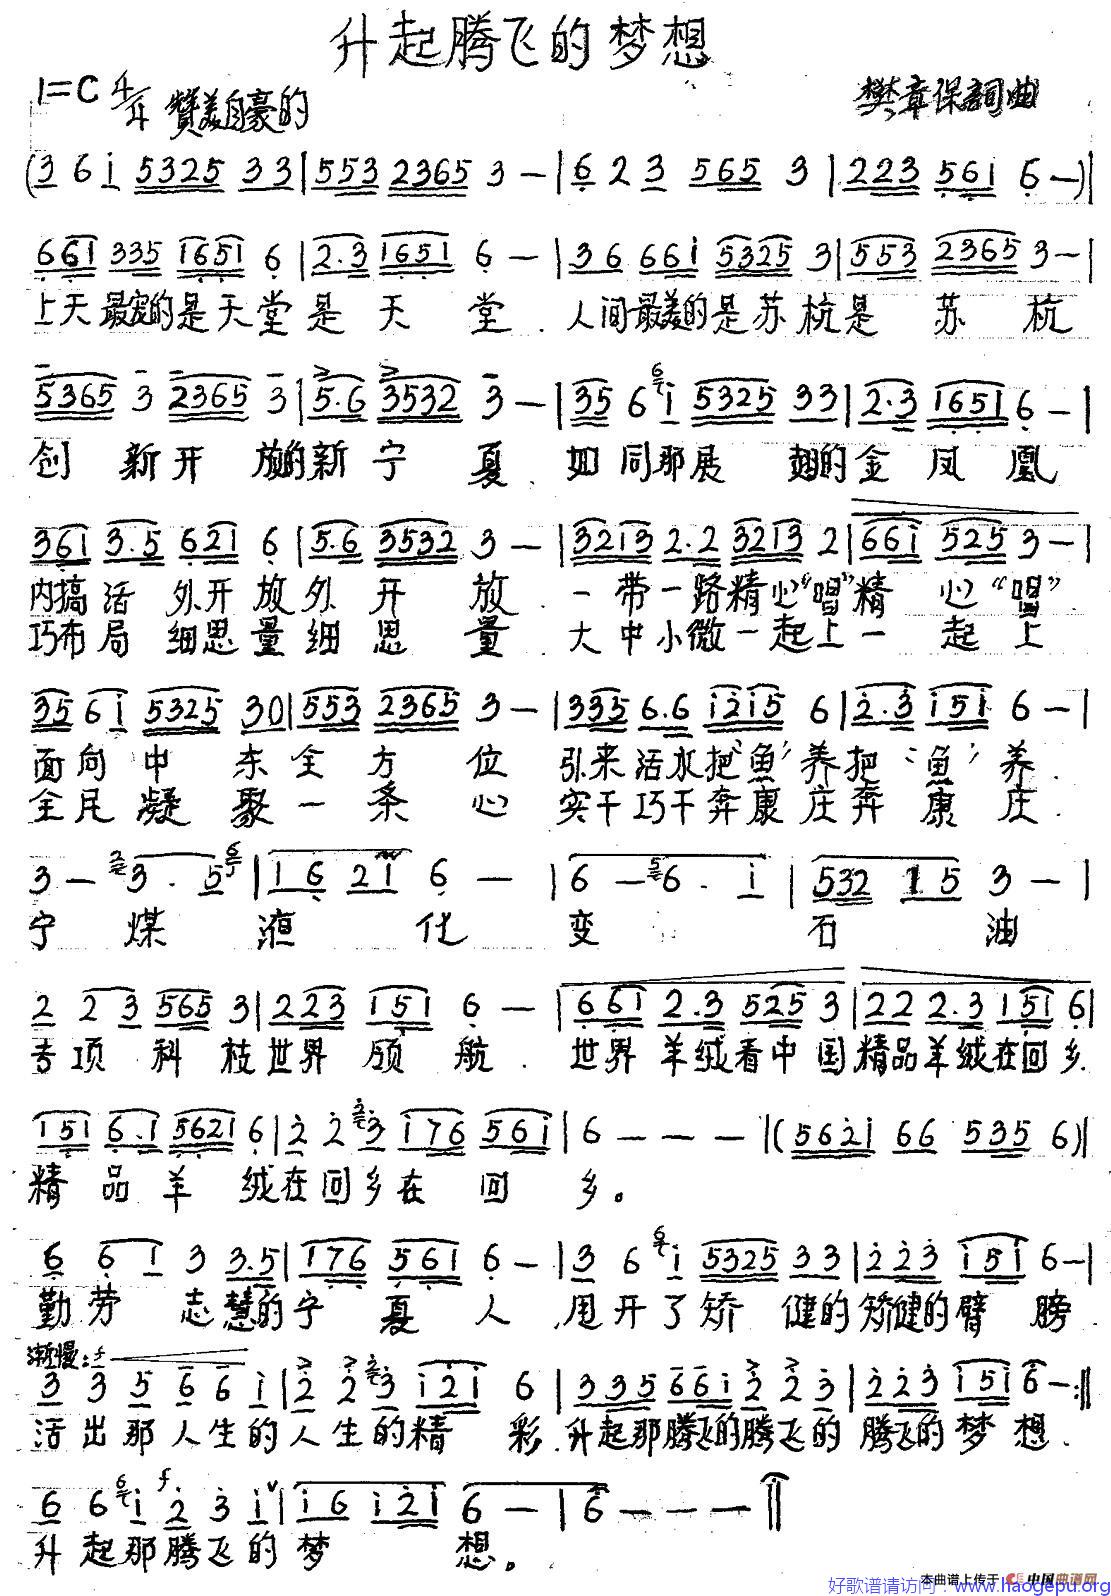 升起腾飞的梦想
1=C 4/4 赞美自豪的
樊章保詞曲
(3 6 i 5325 33 | 553 2365 3 — | 6 2 3 565 3 | 223 561 6 —) |
661 335 1651 6 | 2·3 1651 6 — | 36 661 5325 3 | 553 2365 3 — |
上天最宠的是天堂是天堂. 人间最美的是苏杭是苏杭
5365 3 2365 3 | 5·6 3532 3 — | 35 6 i 5325 33 | 2·3 1651 6 — |
创新开放的新宁夏. 如同那展翅的金凤凰
361 3·5 621 6 | 5·6 3532 3 — | 3213 2·2 3213 2 | 66i 525 3 — |
内搞活外开放外开放. 一带一路精心“唱”精心“唱”.
巧布局细思量细思量 大中小微一起上一起上
35 6i 5325 30 | 553 2365 3 — | 335 6·6 i2i5 6 | 2·3 i5i 6 — |
面向中东全方位 引来活水把‘鱼’养把‘鱼’养.
全民凝聚一条心 实干巧干奔康庄奔康庄.
3 — 3 · 5 | 16 21 6 — | 6 — 6 · i | 532 15 3 — |
宁煤液化变石油
2 23 565 3 | 223 151 6 — | 661 2·3 525 3 | 22 2·3 151 6 |
专项科技世界领航. 世界羊绒看中国精品羊绒在回乡.
151 6·1 5621 6 | 2 2 3 i76 56i | 6 — — — | (562i 66 535 6) |
精品羊绒在回乡在回乡。
6 6 1 3 3·5 | 176 561 6 — | 3 6 i 5325 33 | 223 i5i 6 — |
勤劳志慧的宁夏人. 甩开了矫健的矫健的臂膀
渐慢: f
3 3 5 6 6 i | 2 2 3 i2i 6 | 335 66i 2 2 3 | 223 i5i 6 — :||
活出那人生的人生的精彩. 升起那腾飞的腾飞的腾飞的梦想.
6 6 i 2 3 i | i6 i2i 6 — | 6 — — — ||
升起那腾飞的梦想。
本曲谱上传于 中国曲谱网
好歌谱请访问：www.haogepu.org